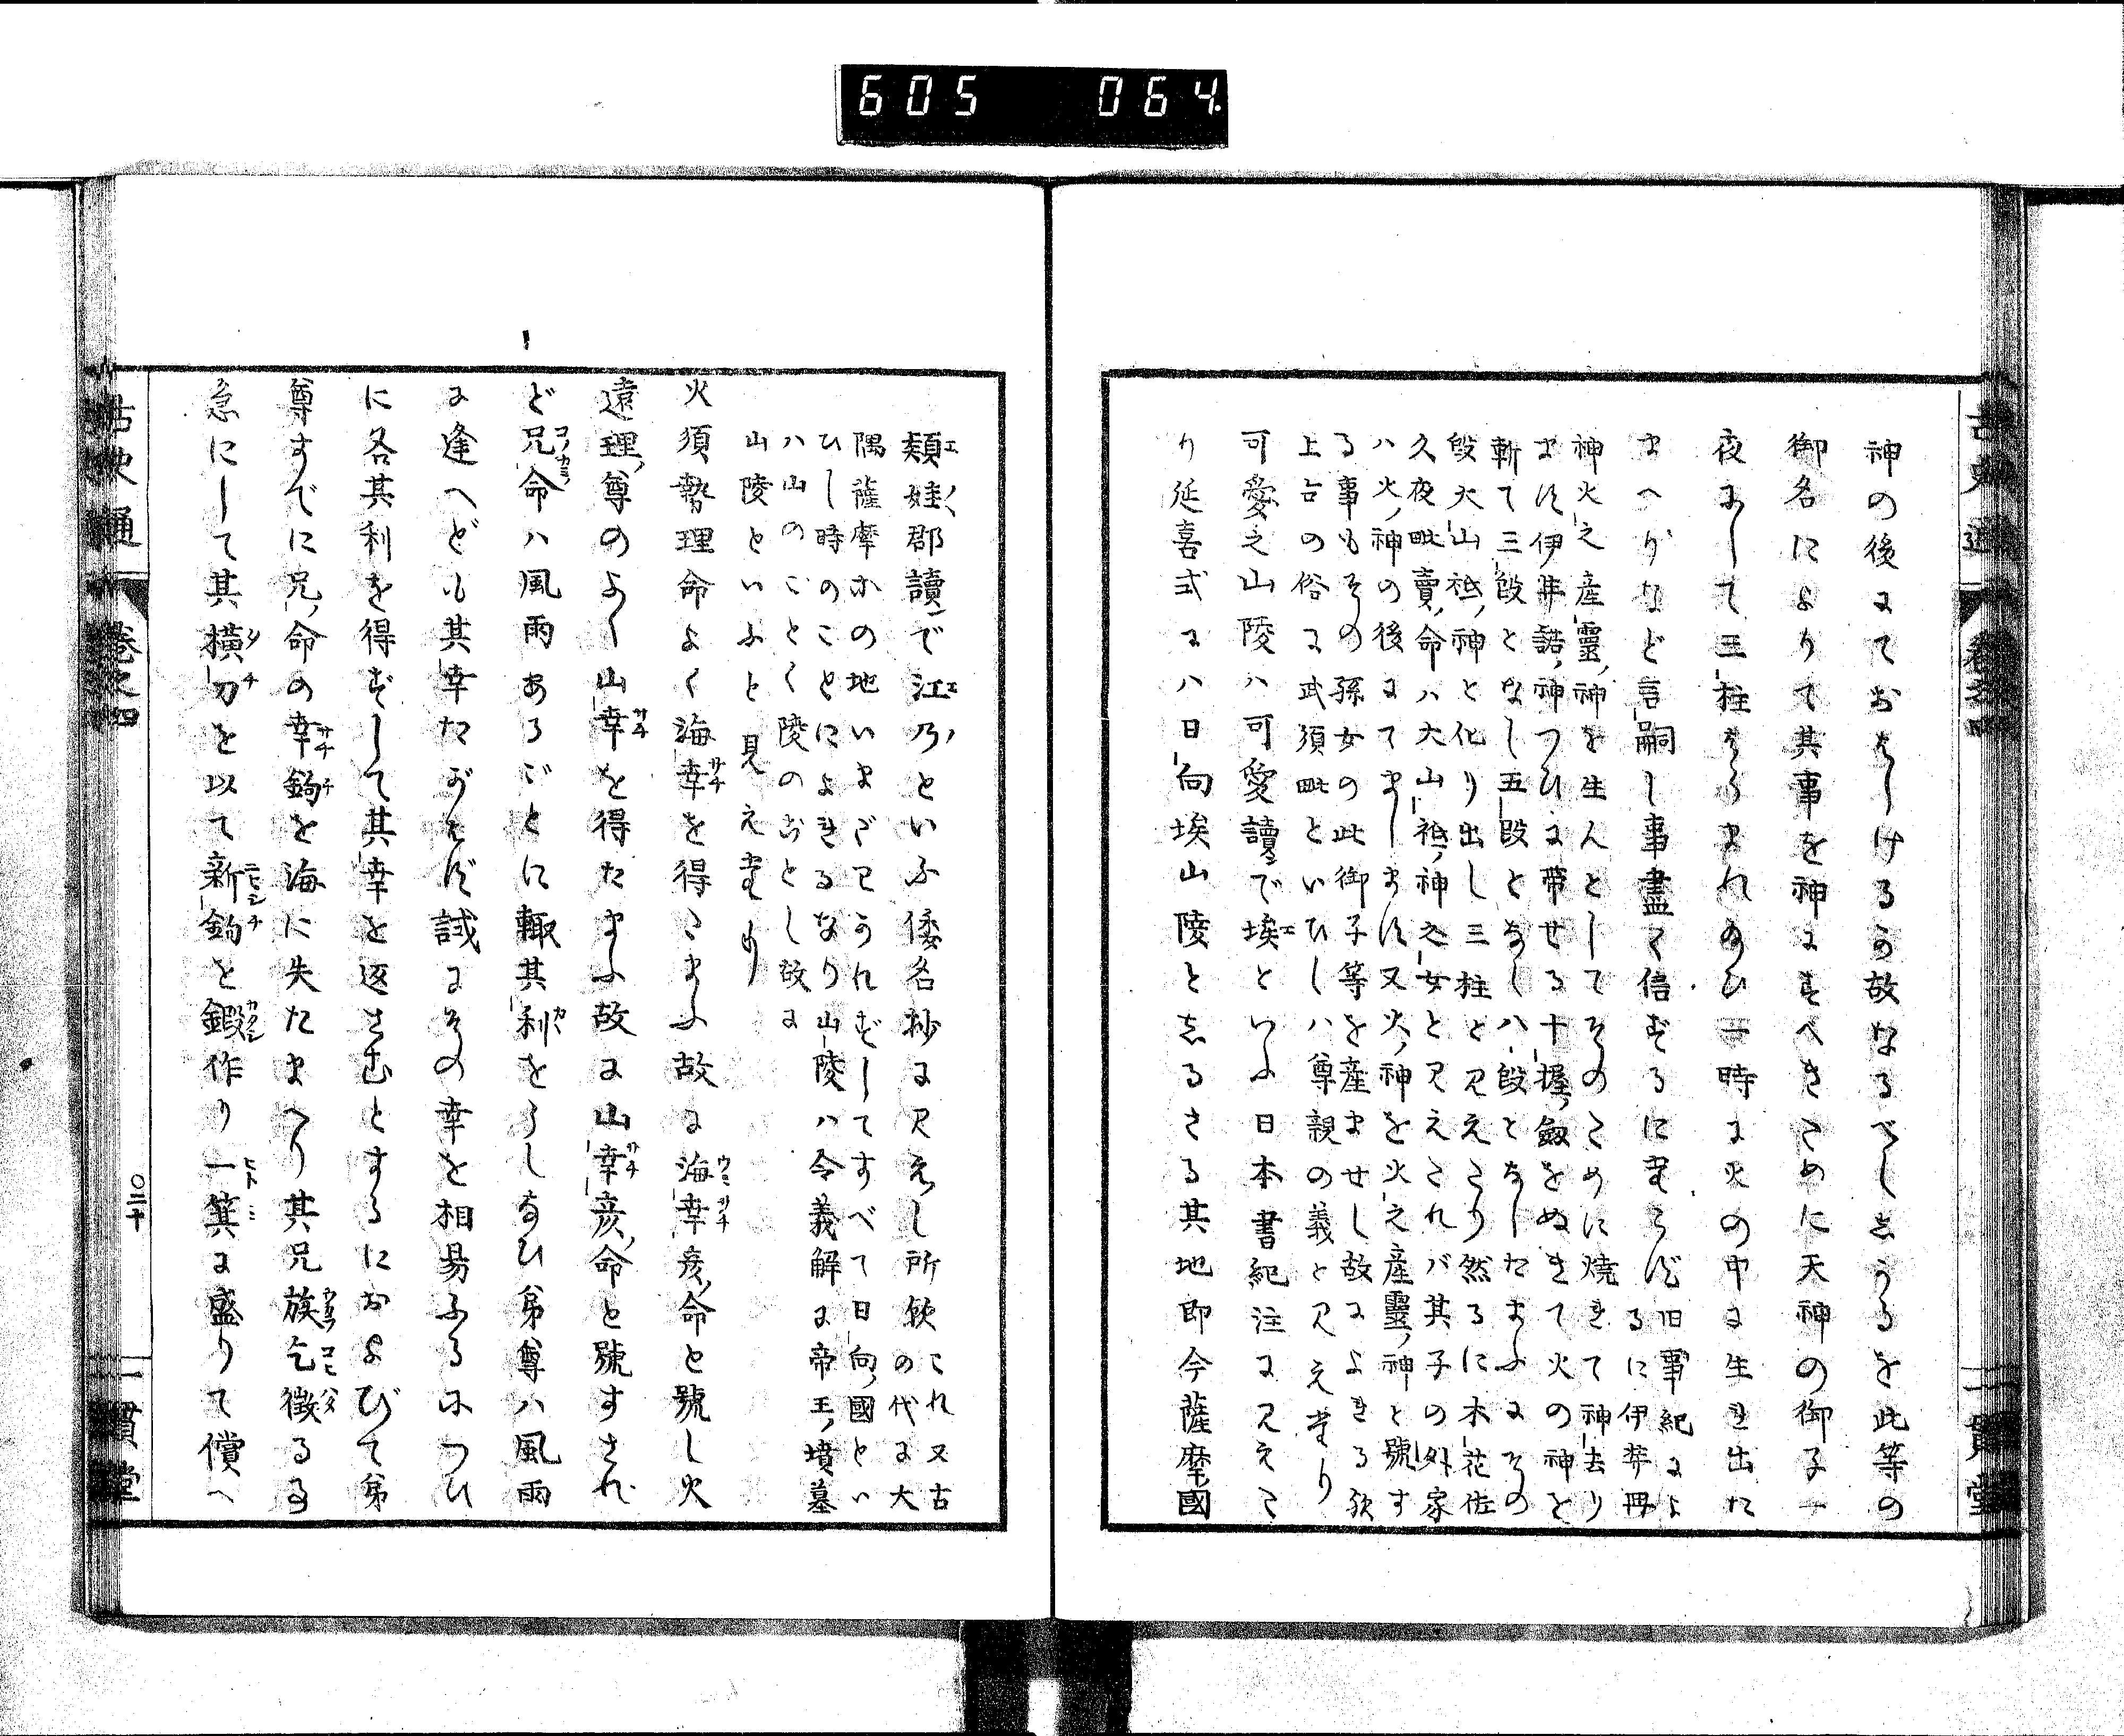 605 064
古史通 卷之四 一貫堂
神の後にておはしける故なるべししかるを此等の
御名によりて其事を神にすべきために天神の御子一
夜にして三柱をうまれ給ひ一時に火の中に生れ出た
まへりなど言嗣し事盡く信ずるにたらず
旧事紀によ
るに伊弉冊
神火之産靈神を生んとしてそのために焼れて神去り
ます伊弉諾神つひに帶せる十握劔をぬきて火の神を
斬て三段となし五段となし八段となしたまふにその
段大山祇神と化り出し三柱と見えたり然るに木花佐
久夜毗賣命ハ大山祇神之女と見えたれバ其子の外家
ハ火神の後にてまします又火神を火之産靈神と號す
る事もその孫女の此御子等を産ませし故によれる歟
上古の俗に武須毗といひしハ尊親の義と見えたり
可愛之山陵ハ可愛讀で埃といふ日本書紀注に見えた
り延喜式にハ日向埃山陵としるさる其地即今薩摩國
頴娃郡讀で江乃といふ倭名抄に見えし所歟これ又古の代に大
隅薩摩等の地いまだわかれずしてすべて日向國とい
ひし時のことによれるなり山陵ハ令義解に帝王墳墓
ハ山のごとく陵のごとし故に
山陵といふと見えたり
火須勢理命よく海幸を得たまふ故に海幸彦命と號し火
遠理尊のよく山幸を得たまふ故に山幸彦命と號すされ
ど兄命ハ風雨あるごとに輙其利をうしなひ弟尊ハ風雨
に逢へども其幸たがはず試にその幸を相易ふるにつひ
に各其利を得ずして其幸を返さむとするにおよびて弟
尊すでに兄命の幸鉤を海に失たまへり其兄族乞徴る事
急にして其横刀を以て新鉤を鍛作り一箕に盛りて償へ
古史通 卷之四 〇二十 一貫堂